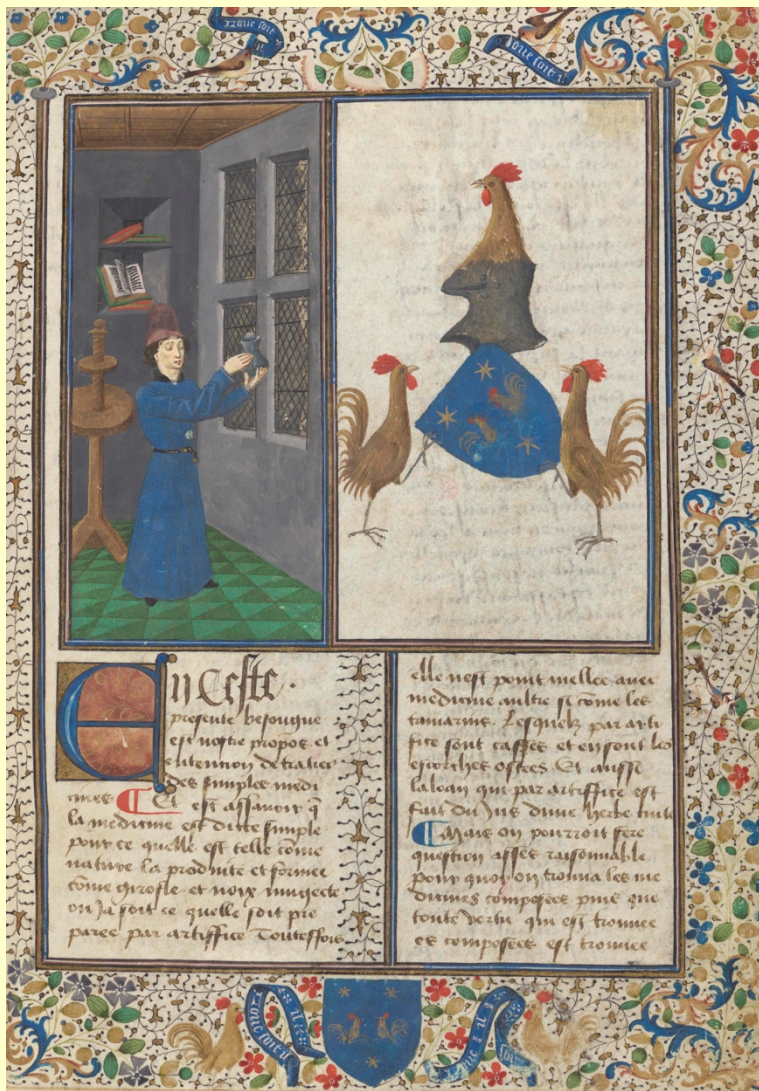 En Ceste
presente besongne
est nostre propos et
entention de traitier
des simples medi
cines Et est assavoir q̃
la medicine est ditte simple
pour ce quelle est telle cõme
nature la produite et formee
cõme girofle et noix mugecte
ou Ja soit ce quelle soit pre
paree par artiffice Touteffois
elle nest point mellee avec
medicine aultre si cõme les
tamarins. Lesquelz par arti
fice sont cassés et en sont les
escorches ostees Et aussi
laloan qui par artiffice est
fait du Jus dune herbe cuite
Mais on pourroit fere
question assés raisonnable
pour quoy on trouva les me
dicines composees puis que
toute vertu qui est trouvee
es composees est trouvee